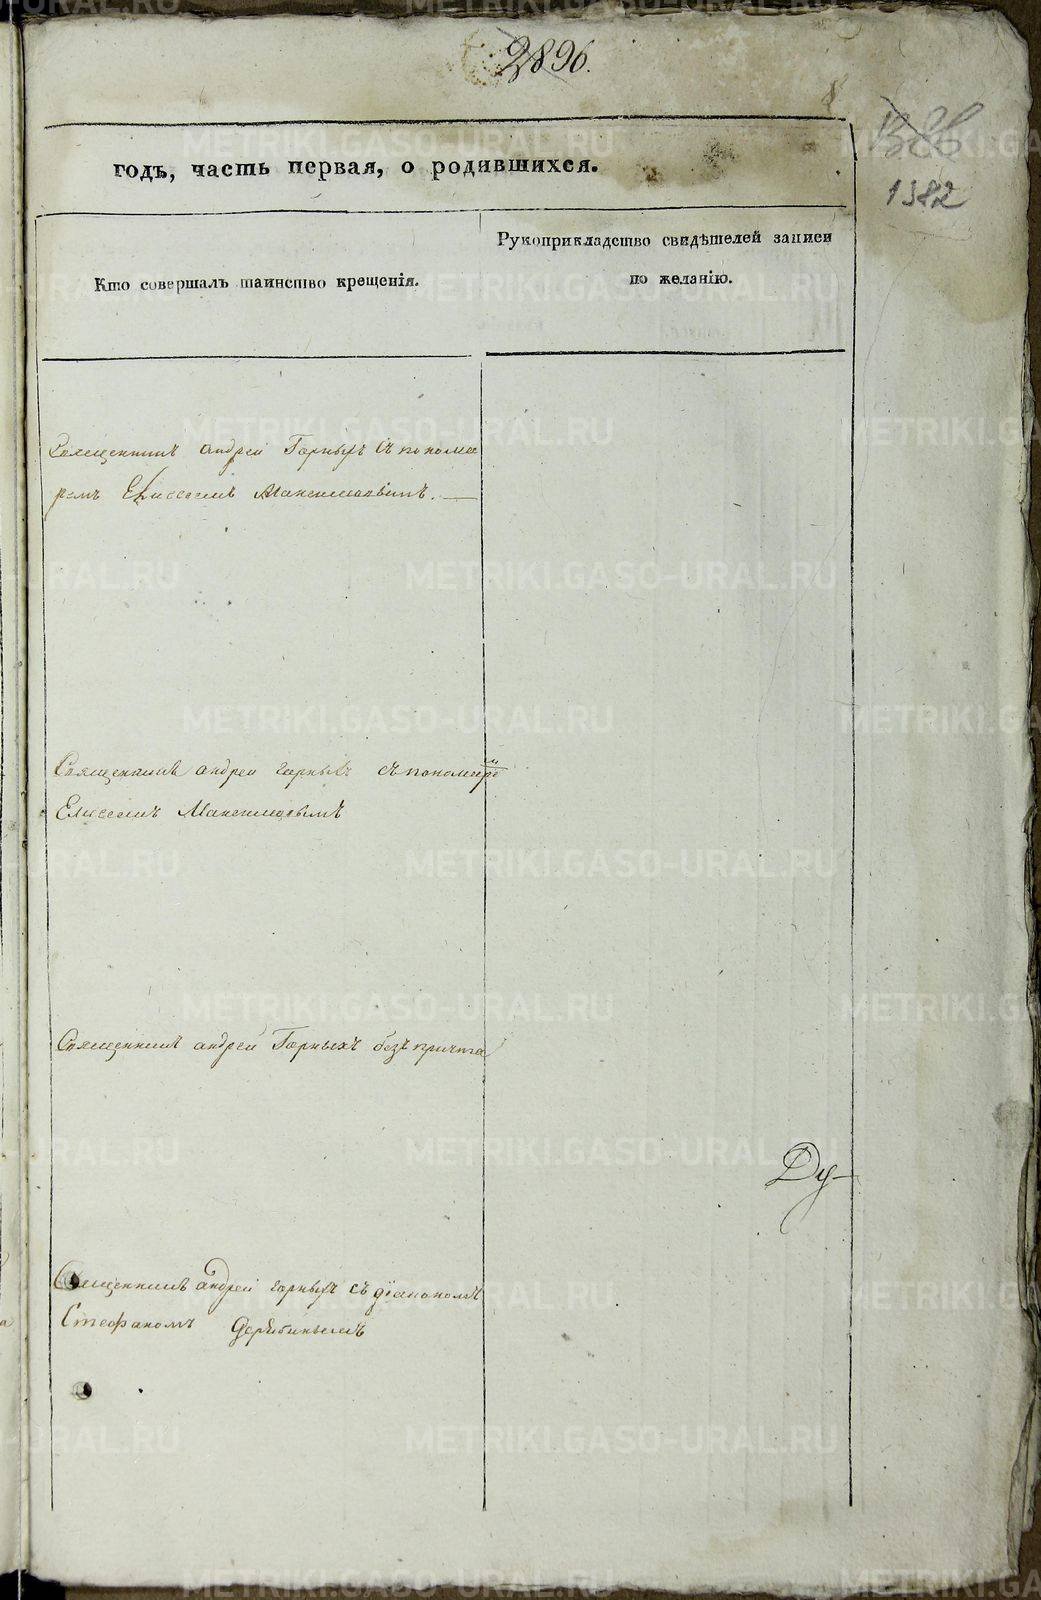 2896.
1382
годъ, часть первая, о родившихся.
Кто совершалъ таинство крещенія.
Рукоприкладство свидѣтелей записи
по желанію.
Священникъ андрей Горныхъ съ понома
ремъ Елисеемъ Максимовымъ.
Священникъ андрей горныхъ съ пономаремъ
Елисеемъ Максимовымъ
Священникъ андрей Горныхъ безъ причта
Ду-
Священникъ андрей горныхъ съ діакономъ
Стефаномъ Дерябинымъ
METRIKI.GASO-URAL.RU